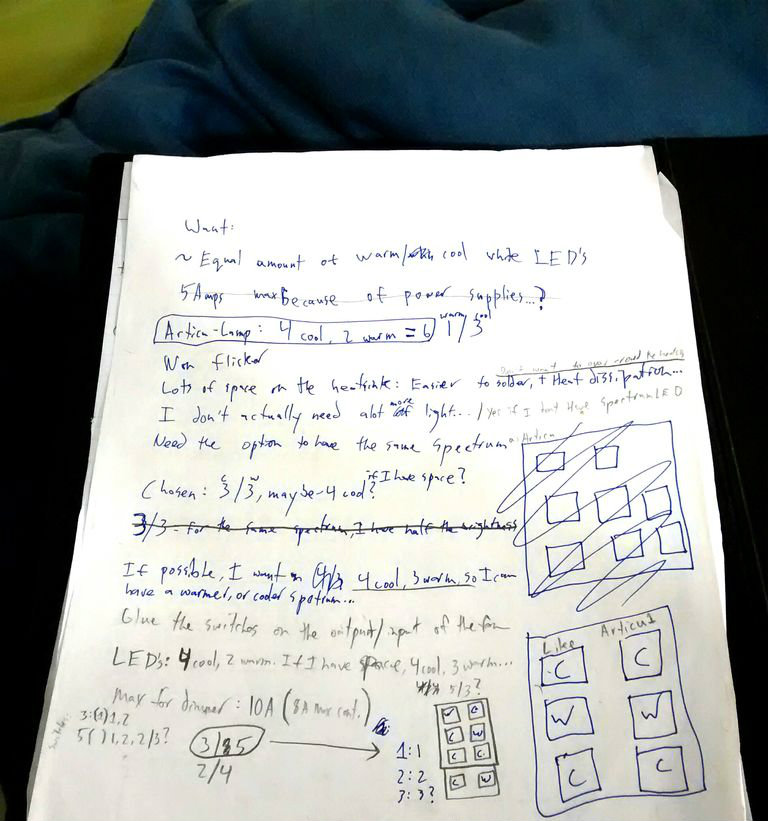 Want:
~ Equal amount of warm/ cool white LED's
5 Amps max because of power supplies...?
Artica-Lamp: 4 cool, 2 warm = 6 1 warm / 3 cool
Non flicker
Don't want to over-crowd the heatsink
Lots of space on the heatsink: Easier to solder, + Heat dissipation...
I don't actually need alot more of light... / Yes if I don't have spectrum LED
Need the option to have the same spectrum as Artica
Chosen: 3 C / 3 W, maybe 4 cool? if I have space?
3/3 - for the same spectrum, I have half the brightness
If possible, I want a (4/3 4 cool, 3 warm, so I can
have a warmer, or cooler spectrum...
Glue the switches on the output/input of the
LED's: 4 cool, 2 warm. If I have space, 4 cool, 3 warm...
Max for dimmer: 10A (8A max cont.)
4/4 5/3?
3:(1) 1, 2
5( ) 1, 2, 2/3?
3/5
2/4
1:1
2:2
3:3?
W C
C W
C C
C W
Like Artica 1
C C
W W
C C